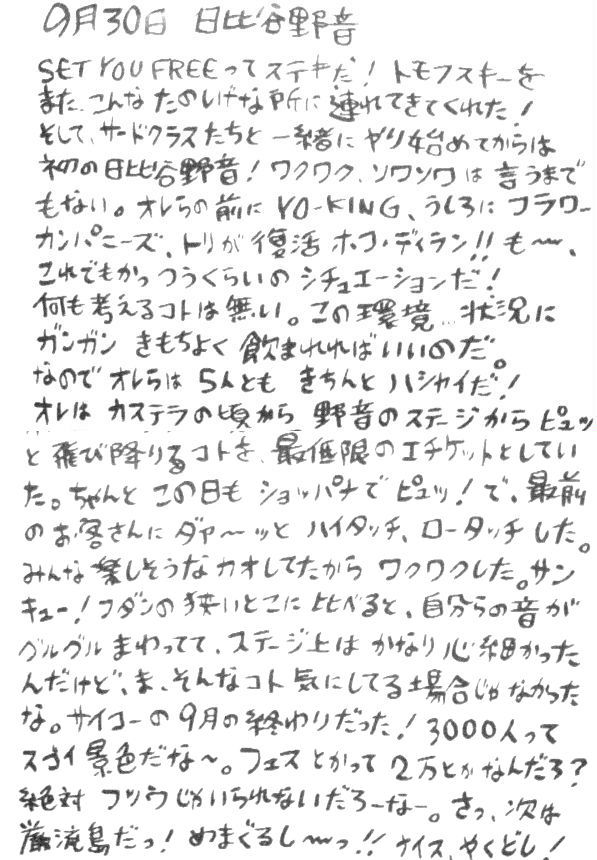 9月30日 日比谷野音
SET YOU FREEってステキだ! トモフスキーを
また、こんなたのしげな所に連れてきてくれた!
そして、サードクラスたちと一緒にやり始めてからは
初の日比谷野音! ワクワク、ソワソワは言うまで
もない。オレらの前にYO-KING、うしろにフラワー
カンパニーズ、トリが復活ホフ・ディラン!! も〜、
これでもかっつうくらいのシチュエーションだ!
何も考えるコトは無い。この環境…状況に
ガンガンきもちよく飲まれればいいのだ。
なのでオレらは5人ともきちんとハシャイだ!
オレはカステラの頃から野音のステージからピュッ
と飛び降りるコトを、最低限のエチケットとしてい
た。ちゃんとこの日もショッパナでピュッ! で、最前
のお客さんにダァ〜ッとハイタッチ、ロータッチした。
みんな楽しそうなカオしてたからワクワクした。サン
キュー! フダンの狭いとこに比べると、自分らの音が
グルグルまわってて、ステージ上はかなり心細かった
んだけど、ま、そんなコト気にしてる場合じゃなかった
な。サイコーの9月の終わりだった! 3000人って
スゴイ景色だな〜。フェスとかって2万とかなんだろ?
絶対フツウじゃいられないだろーなー。さっ、次は
巌流島だっ! めまぐるし〜っ!! ナイス、やくどし!